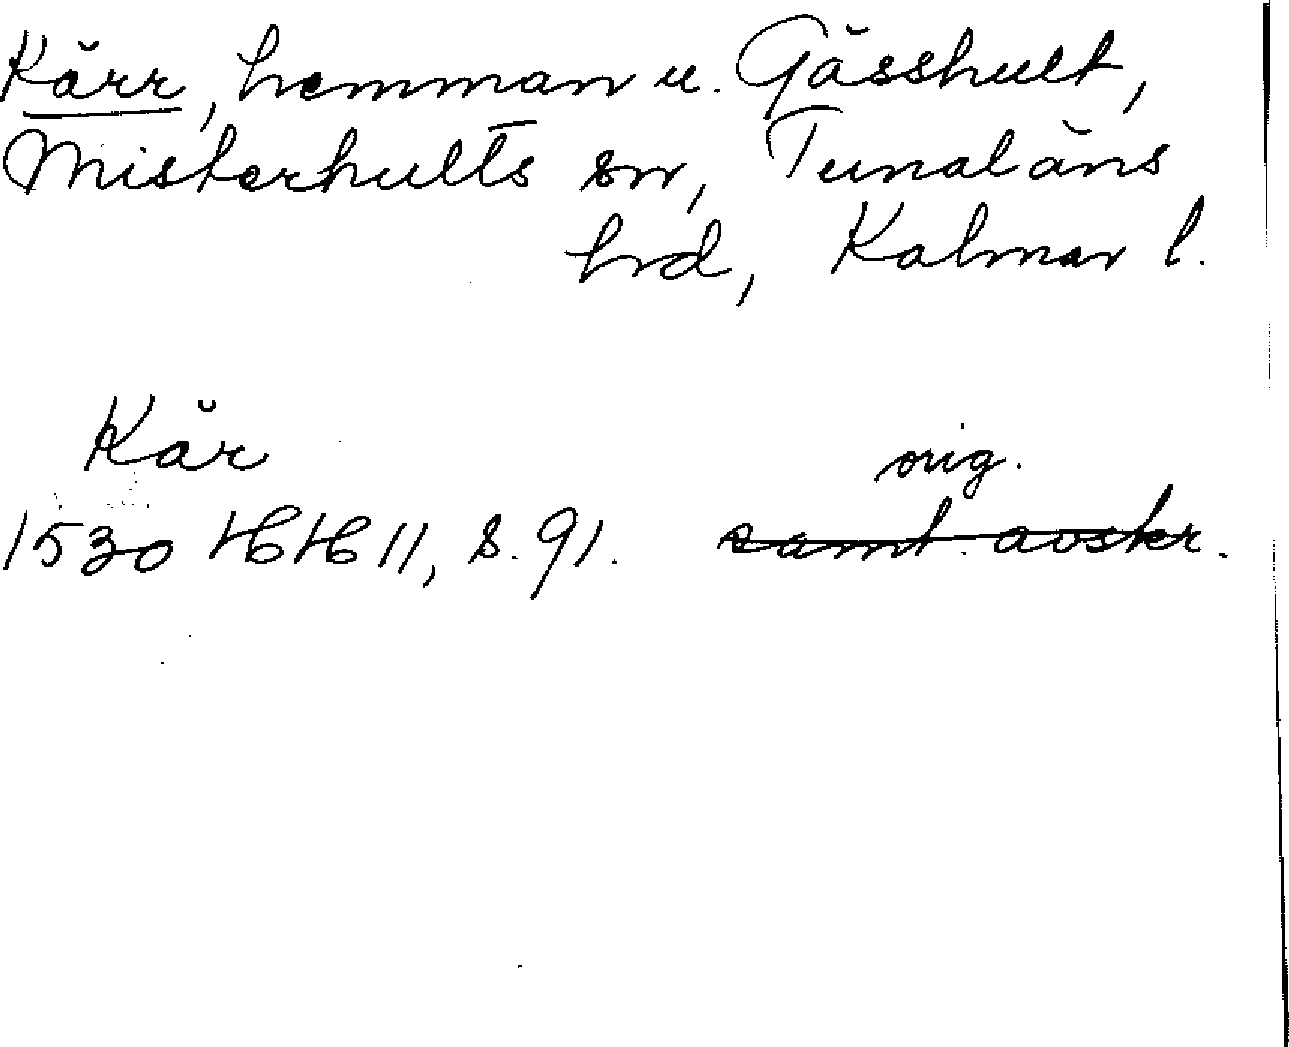 Kärr, hemman u. Gässhult,
Misterhults sn, Tunaläns
hd, Kalmar l.
Kär
orig.
1530 HH 11, s. 91. samt. avskr.